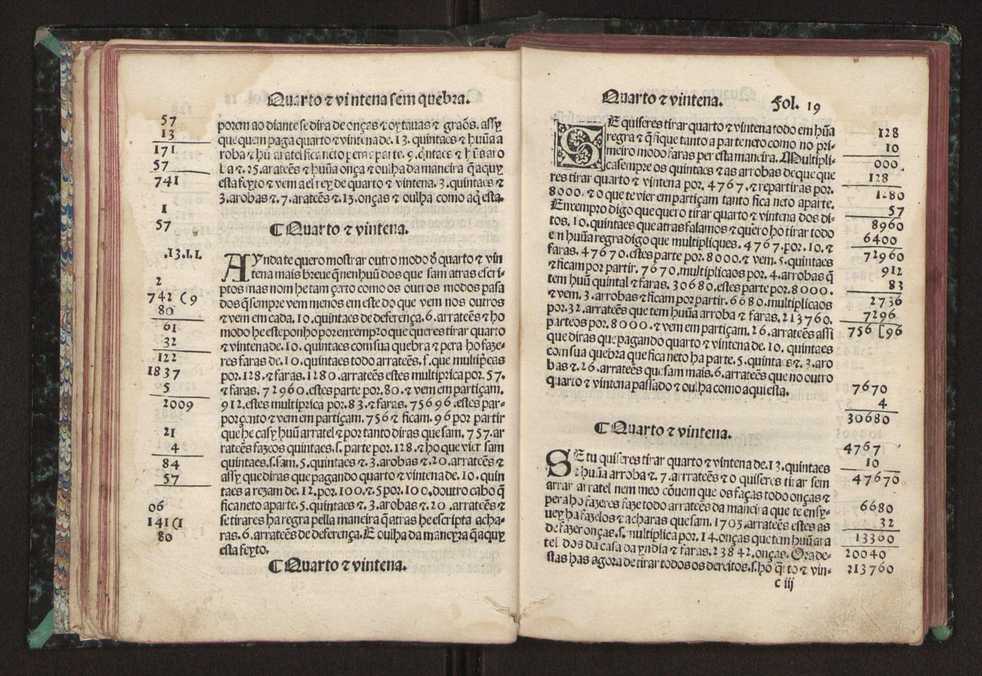 Quarto ⁊ vintena sem quebra.
57
13
171
57
741
1
57
.13.1.1.
2
742 (9
80
61
32
122
1837
5
2009
21
4
84
57
06
141(1
80
porem ao diante se dira de onças ⁊ oytauas ⁊ graõs. assy
que quem paga quarto ⁊ vintena de .13. quintaes ⁊ huũa a
roba ⁊ hũ aratel fica neto pera parte. 9. quitaes ⁊ hũ saro
ba ⁊ .25. arateẽs ⁊ huũa onça ⁊ oulha da maneira q̃ aquy
esta feyto ⁊ vem a el rey de quarto ⁊ vintena. 3. quintaes ⁊
3. arobas ⁊ .7. arateẽs ⁊ .15. onças ⁊ oulha como aq̃ esta.
❡ Quarto ⁊ vintena.
AYnda te quero mostrar outro modo ð quarto ⁊ vin
tena mais breue q̃ nenhuũ dos que sam atras escri-
ptos mas nom he tam çerto como os outros modos pasa
dos q̃ sempre vem menos em este do que vem nos outros
⁊ vem em cada .10. quintaes de deferença. 6. arrateẽs ⁊ ho
modo he este ponho por enxempro que queres tirar quarto
⁊ vintena de .10. quintaes com sua quebra ⁊ pera ho faze-
res faras de .10. quintaes todo arrateẽs. s. que multipricas
por .128. ⁊ faras. 1280. arrateẽs estes multiprica por 57.
⁊ faras. 72960. estes parte por .80. ⁊ vem em partiçam.
912. estes multiprica por .83. ⁊ faras. 75696. estes par-
por çento ⁊ vem em partiçam. 756 ⁊ ficam. 96 por partir
que he casy huũ arratel ⁊ por tanto diras que sam. 757. ar
rateẽs fazeos quintaes. s. parte por .128. ⁊ ho que vier sam
quintaes. s. sam. 5. quintaes ⁊ .3. arobas ⁊ .20. arrateẽs ⁊
assy que diras que pagando quarto ⁊ vintena de .10. quin
taes a rezam de .12. por .100. ⁊ 5 por .100. doutro cabo q̃
fica neto aparte. 5 quintaes ⁊ .3. arobas ⁊ .20 .arrateẽs ⁊
se tirares ha regra pella maneira q̃ atras he escripta acha-
ras. 6. arrateẽs de deferença. E oulha da maneyra q̃ aquy
esta feyto.
❡ Quarto ⁊ vintena.
Quarto ⁊ vintena. Fol. 19
SE quiseres tirar quarto ⁊ vintena todo em hũa
regra ⁊ q̃ fique tanto a parte neto como no pri-
meiro modo faras per esta maneira. Multipli-
ca sempre os quintaes ⁊ as arrobas de que que
res tirar quarto ⁊ vintena por. 4767. ⁊ repartiras por.
8000. ⁊ o que te vier em partiçam tanto fica neto aparte.
Enxempro digo que quero tirar quarto ⁊ vintena dos di-
tos. 10. quintaes que atras falamos ⁊ quero ho tirar todo
en huũa regra digo que multipliques. 4767. por. 10. ⁊
faras. 47670. estes parte por 8000. ⁊ vem. 5. quintaes
⁊ ficam por partir. 7670. multiplicaos por. 4. arrobas q̃
tem huũ quintal ⁊ faras. 30680. estes parte por. 8000.
⁊ vem. 3. arrobas ⁊ ficam por partir. 6680. multiplicaos
por. 32. arrateẽs que tem huũa arroba ⁊ faras. 213760.
parteos por. 8000. ⁊ vem em partiçam. 26. arrateẽs assi
que diras que pagando quarto ⁊ vintena de. 10. quintaes
com sua quebra que fica neto ha parte. 5. quintaes ⁊. 3. aro
bas ⁊. 26. arrateẽs que sam mais. 6. arrateẽs que no outro
quarto ⁊ vintena passado ⁊ oulha como aqui esta.
❡ Quarto ⁊ vintena.
SE tu quiseres tirar quarto ⁊ vintena de. 13. quintaes
⁊ huũa arroba ⁊. 7. arrateẽs ⁊ o quiseres tirar sem
arrar arratel nem meo cõuem que os faças todo onças ⁊
pera ho fazeres faze todo arrateẽs da maneira que te ensy-
uey ha fazelos ⁊ acharas que sam. 1703. arrateẽs estes as
de fazer onças. s. multiplica por. 14. onças que tem huũ ara
tel dos da casa da yndia ⁊ faras. 23842. onças. Ora de-
stas has agora de tirar todos os dereitos. s. ho q̃rto ⁊ vin-
c iij
128
10
000
128
1280
57
8960
6400
72960
912
83
2736
7296
756 [96
7670
4
30680
4767
10
47670
6680
32
13360
20040
213760